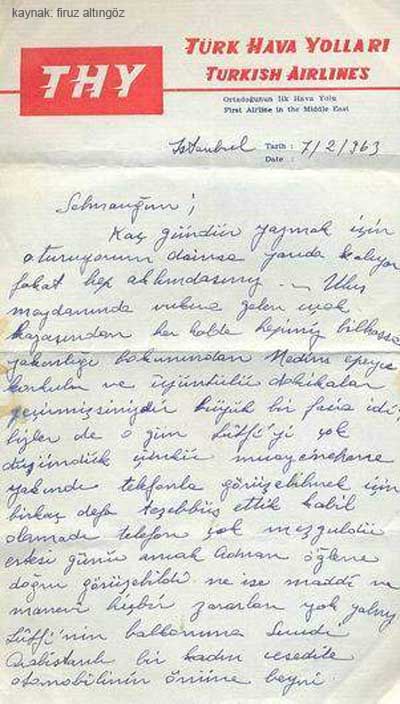 kaynak: firuz altıngöz
THY
TÜRK HAVA YOLLARI
TURKISH AIRLINES
Ortadoğunun İlk Hava Yolu
First Airline in the Middle East
İstanbul Tarih : 7/2/963
Date :
Selmancığım;
Kaç gündür yazmak için
oturuyorum daima yarıda kalıyor
fakat hep aklımdasınız — Ulus
meydanında vukua gelen uçak
kazasından her halde hepiniz bilhassa
yakınlığı bakımından epeyce
korkulu ve üzüntülü dakikalar
geçirmişsinizdir büyük bir facia idi,
bizler de o gün Lûtfi'yi çok
düşündük çünkü muayenehane
yakındı telefonla görüşebilmek için
birkaç defa teşebbüs ettik kabil
olamadı telefon çok meşguldü
ertesi günü ancak Adnan öğlene
doğru görüşebildi ne ise maddi ve
manevi hiçbir zararları yok yalnız
Lûtfi'nin balkonuna Suudi
Arabistanlı bir kadın cesedi ile
otomobilinin önüne beyni